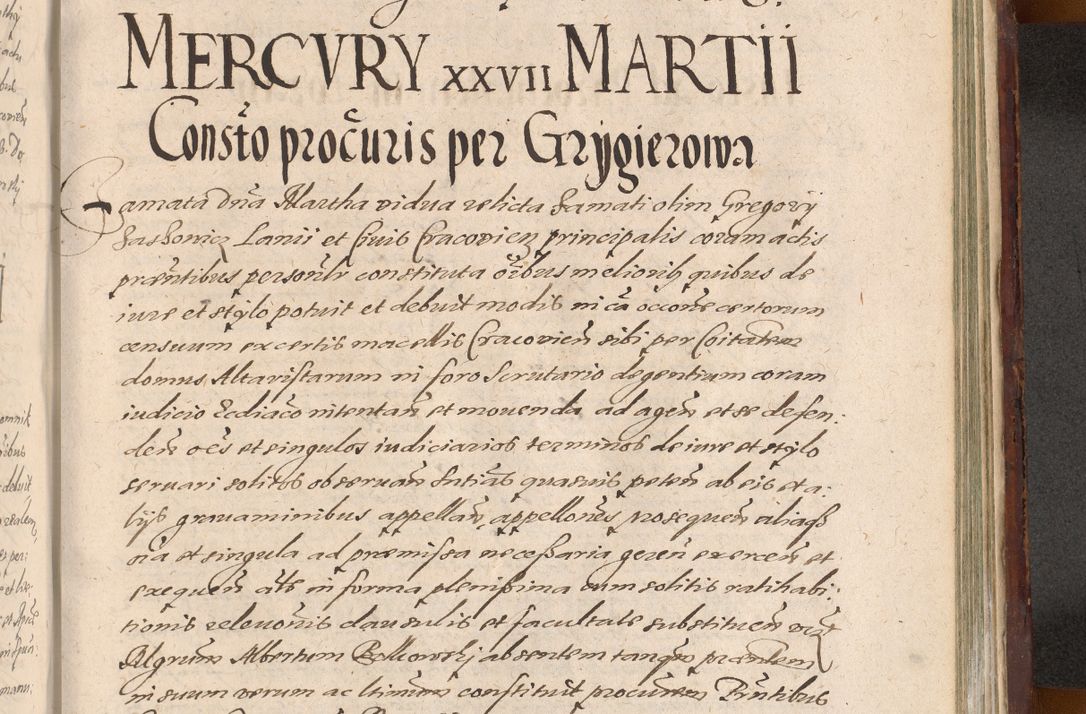 MERCVRY XXVII MARTII
Consto procuris per Grygierowa
Famata Dna Martha vidua relicta Famati olim Gregorij
Jaskowicz Lanii et Civis Cracovien principalis coram actis
præntibus personlr constituta oibus meliorib quibus de
iure et stylo potuit et debuit modis in ca occone certorum
censuum ex certis macellis Cracovien sibi per Coitatem
domus Altaristarum in foro Scrutario degentium coram
iudicio Ecdiaco intentan et movenda ad agen et se defen:
den oes et singulos iudiciarios terminos de iure et stylo
servari solitos observan sntias quasvis peten ab eis et a:
lijs gravaminibus appellan appellones prosequen aliaqз
oia et singula ad præmissa necessaria geren exercen et
exequen als in forma plenissima cum solitis ratihabi:
tionis relevonis clausulis et facultate substituen
Algrum Albertum absentem tanqm præntem
in suum verum ac ltimum constituit procurem Pntibus